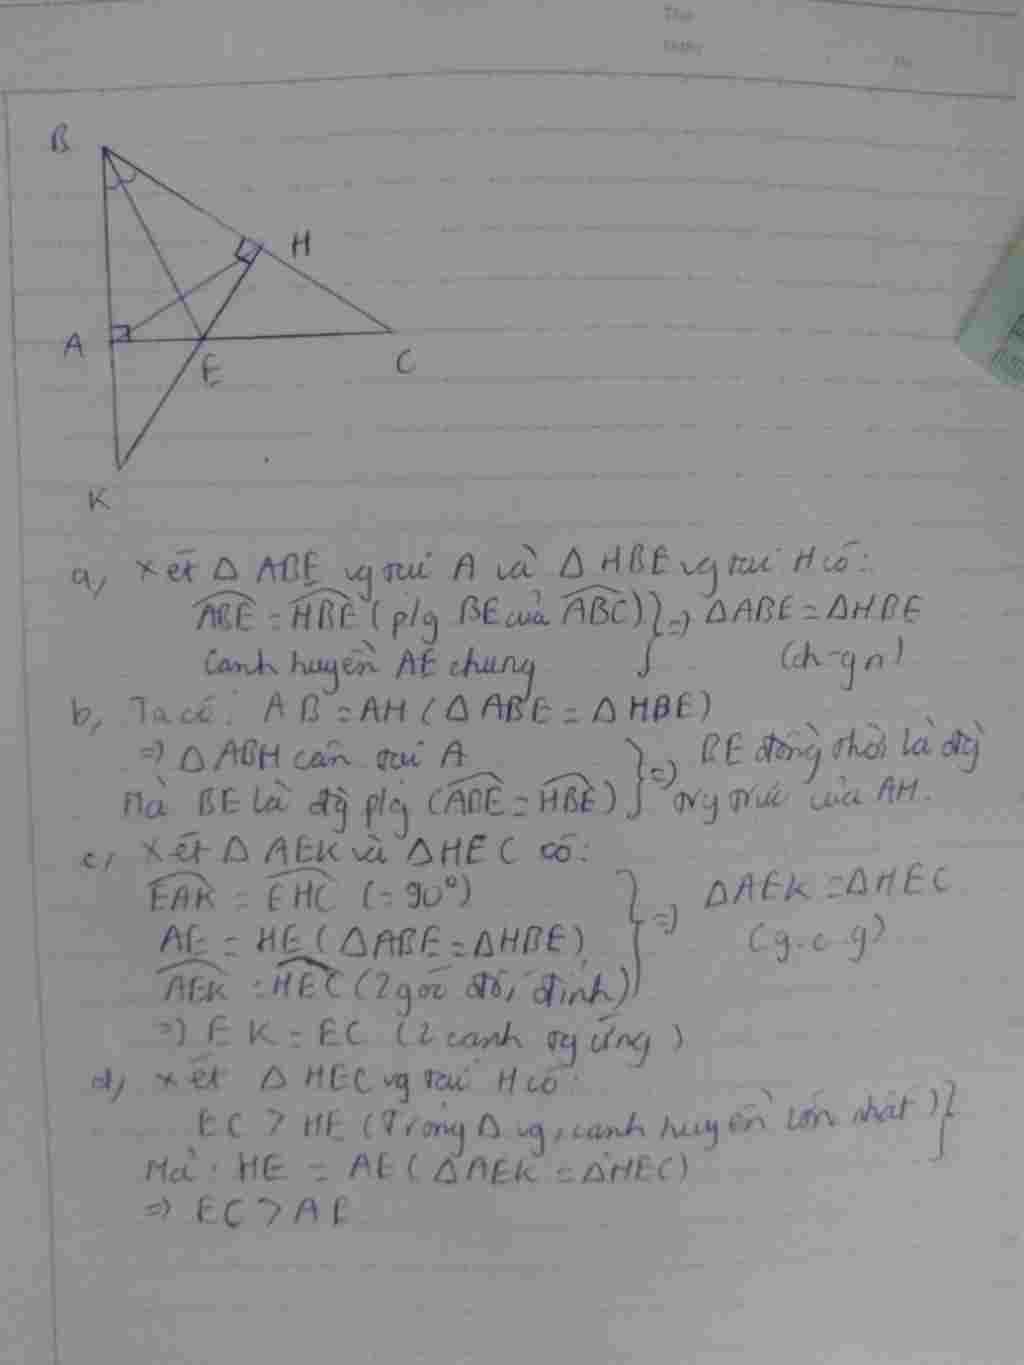 B
H
A
E
C
K
a, Xét Δ ABE vg tại A và Δ HBE vg tại H có:
ABE = HBE (p/g BE của ABC) } => ΔABE = ΔHBE
Cạnh huyền AE chung (ch-gn)
b, Ta có: AB = AH (Δ ABE = Δ HBE)
=> Δ ABH cân tại A
Mà BE là đg p/g (ABE = HBE) } => BE đồng thời là đg
trg trực của AH.
c, Xét Δ AEK và ΔHEC có:
EAK = EHC (= 90°)
AE = HE (ΔABE = ΔHBE) } => ΔAEK = ΔHEC
AEK = HEC (2 góc đối đỉnh) (g.c.g)
=> EK = EC (2 cạnh tg ứng)
d, Xét Δ HEC vg tại H có:
EC > HE (Trong Δ vg, cạnh huyền lớn nhất) }
Mà: HE = AE (ΔAEK = ΔHEC)
=> EC > AE